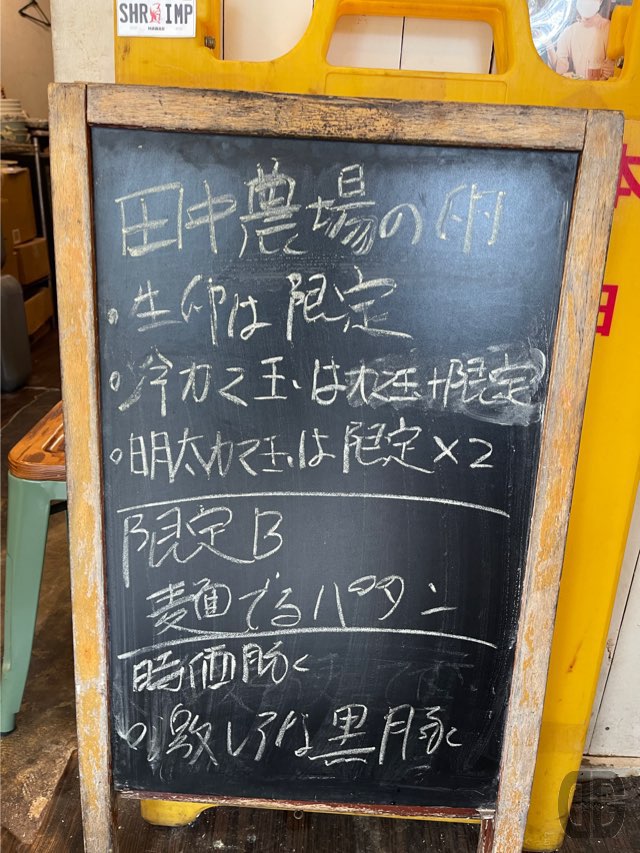 SHRIMP
HAWAII
田中農場の卵
・生卵は限定
・冷カマ玉はカマ玉+限定
・明太カマ玉は限定×2
限定B
麺でるパタン
時価豚く
激レアな黒豚
本
日